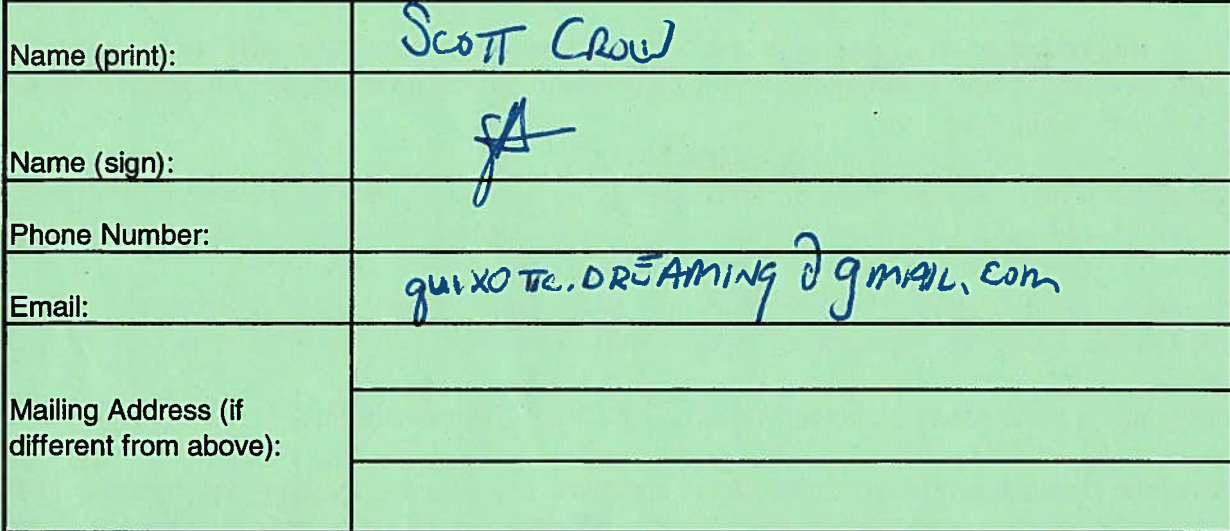 Name (print): SCOTT CROW
Name (sign):
Phone Number:
Email: quixotic.DREAMING@gmAIL.com
Mailing Address (if
different from above):